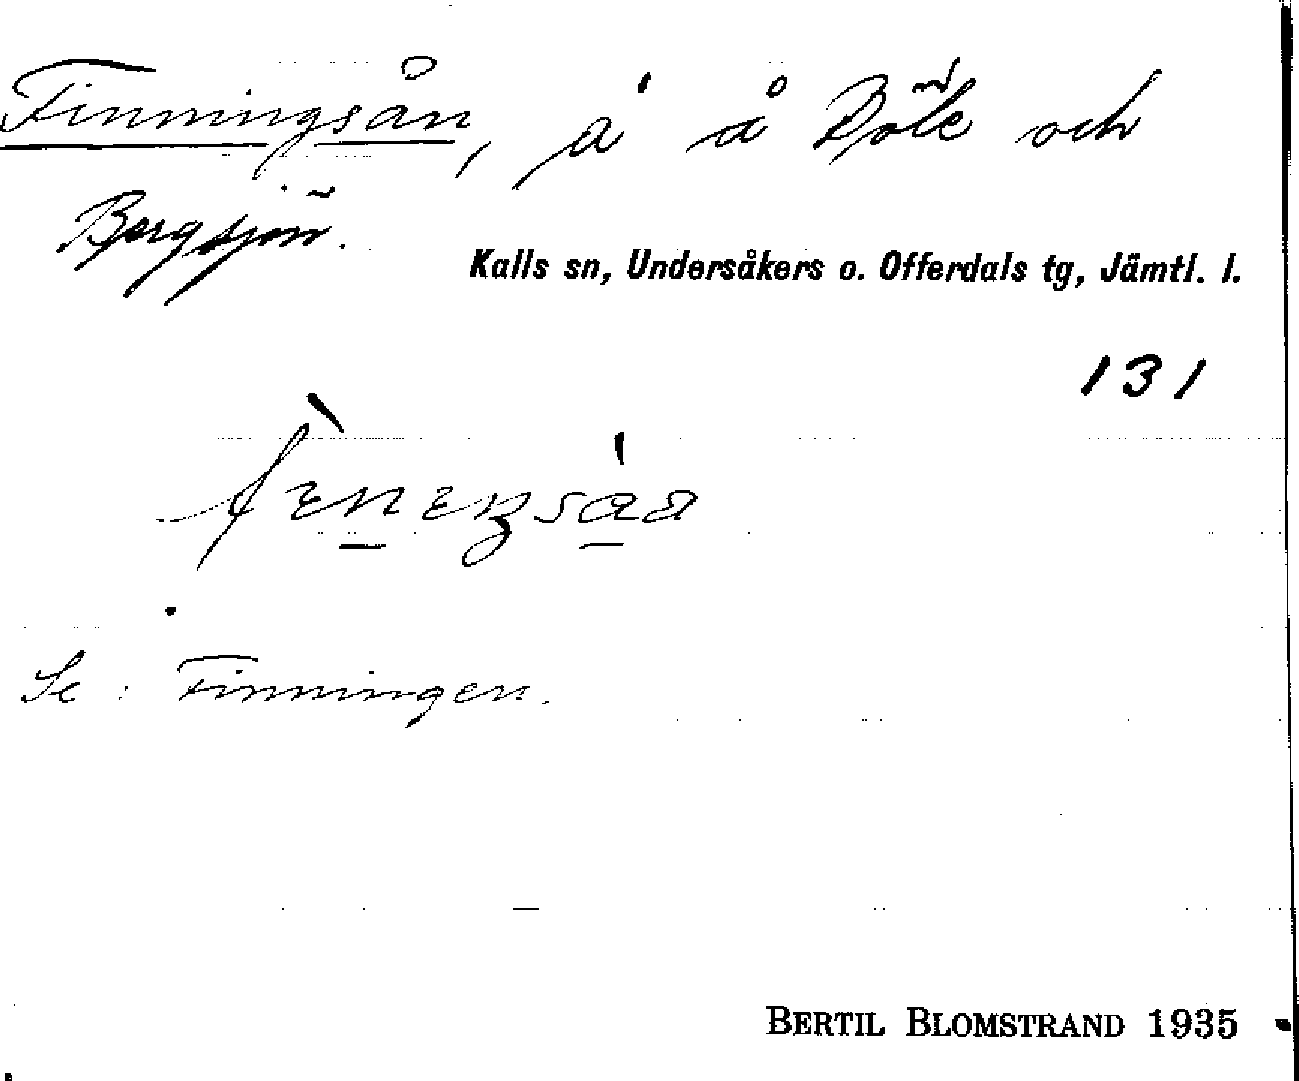 Finningsån, å å Böle och
Bergsjön.
Kalls sn, Undersåkers o. Offerdals tg, Jämtl. l.
131
Se: Finningen.
BERTIL BLOMSTRAND 1935